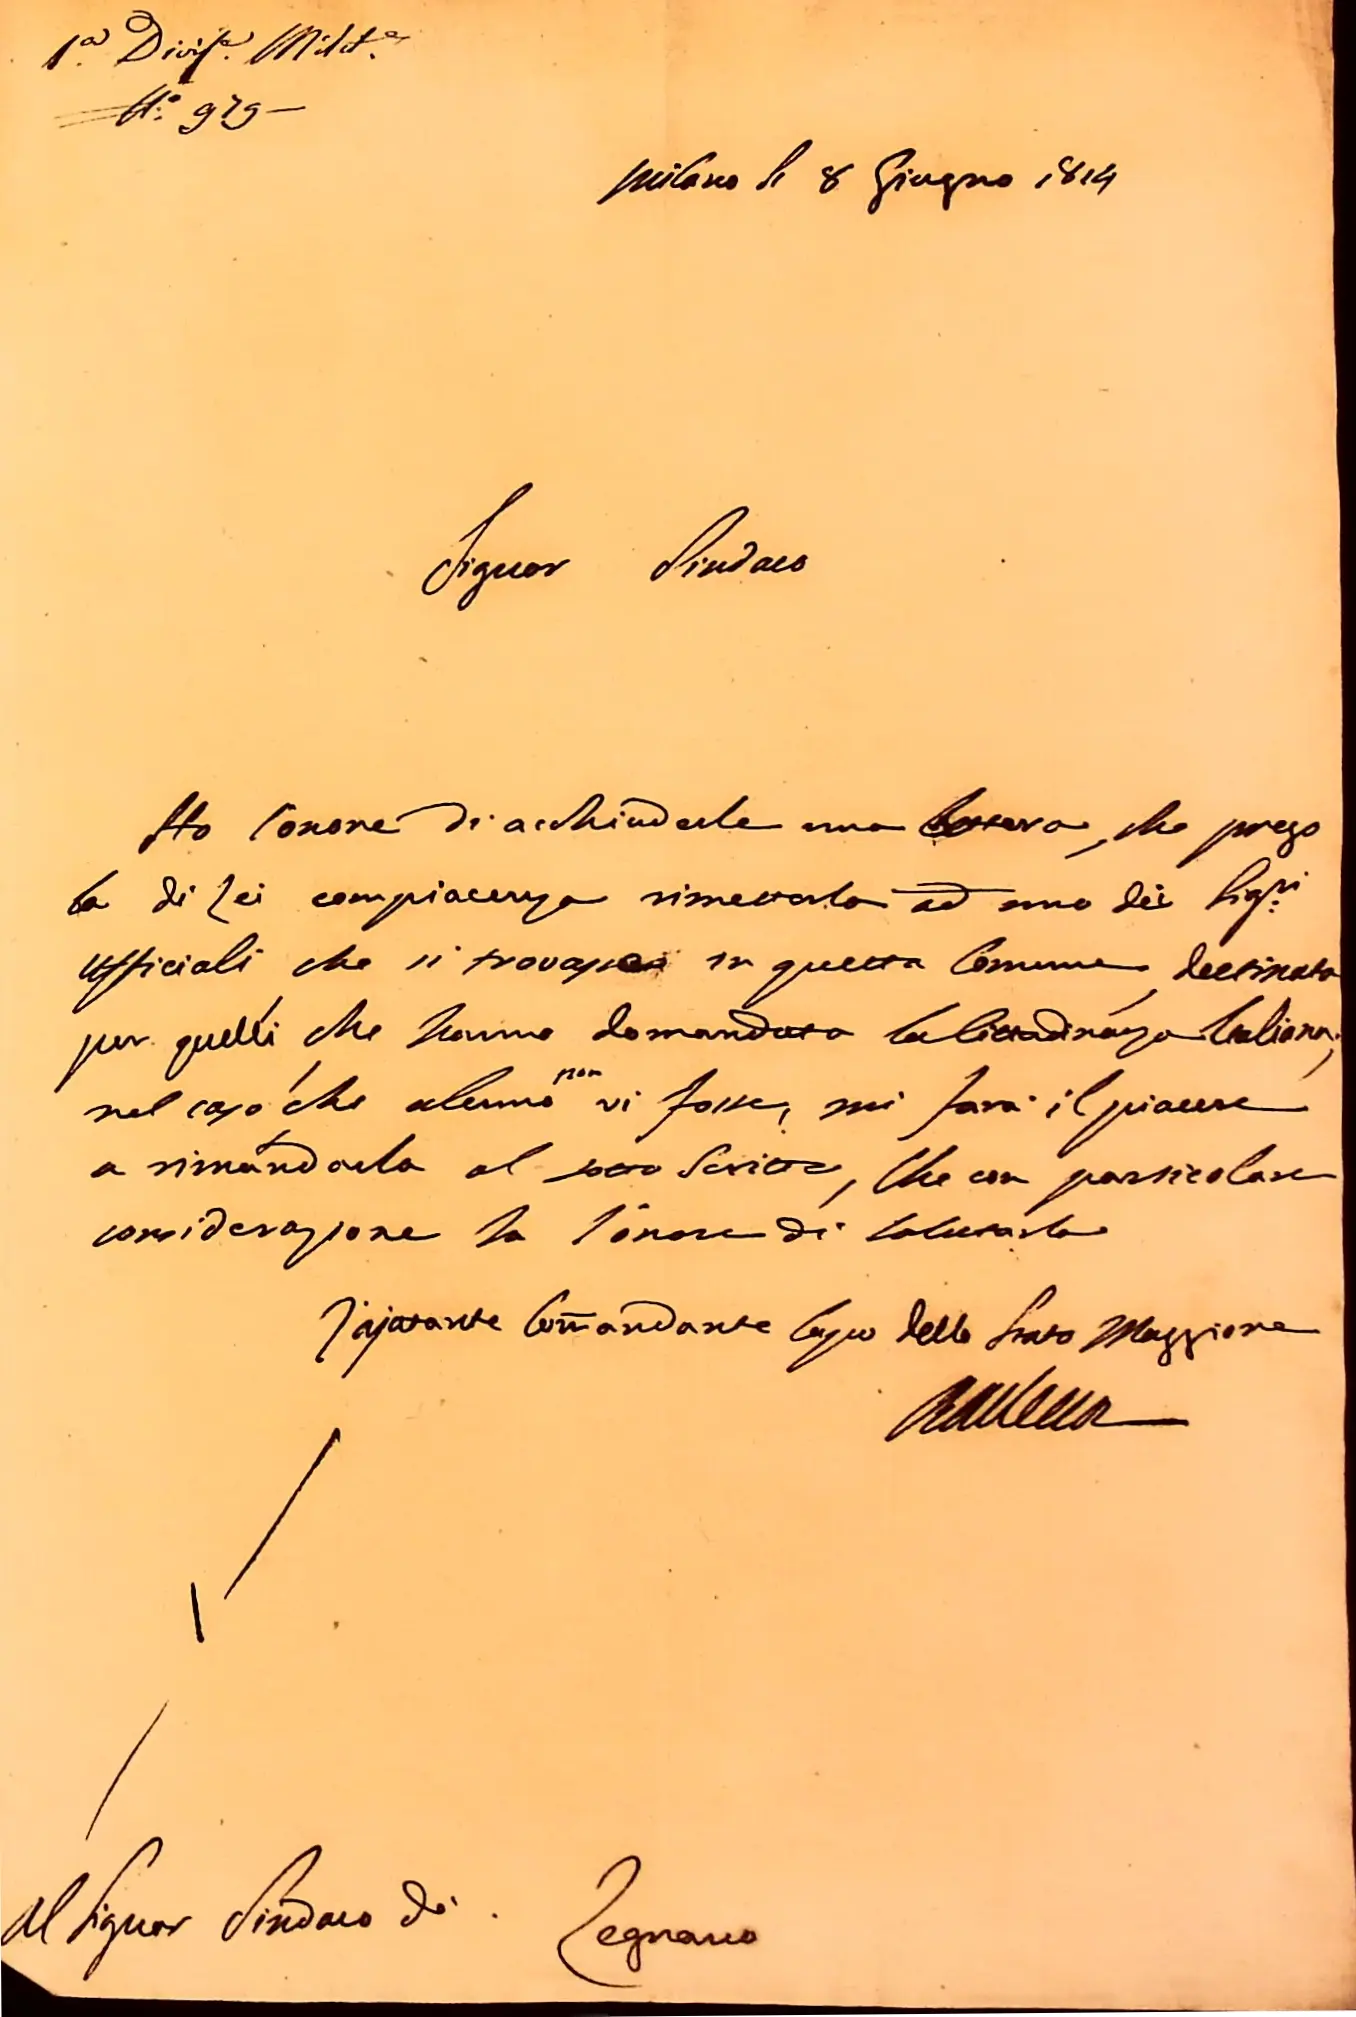 1.a Divis.e Milit.e
N.o 979
Milano li 8 Giugno 1814
Signor Sindaco
Ho l'onore di acchiuderle una lettera, che prego
la di Lei compiacenza rimetterla ad uno dei Sig.ri
Ufficiali che si trovano in questa Comune, destinata
per quelli che hanno domandato la Cittadinanza Italiana,
nel caso che alcuno non vi fosse, mi farà il piacere
a rimandarla al sotto Scritto, che con particolare
considerazione ha l'onore di salutarla
L'ajutante Comandante Capo dello Stato Maggiore
Al Signor Sindaco di Legnano